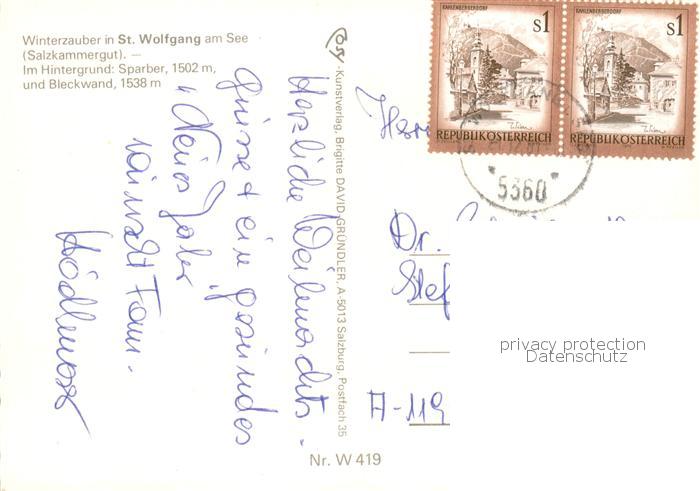 Winterzauber in St. Wolfgang am See
(Salzkammergut). —
Im Hintergrund: Sparber, 1502 m,
und Bleckwand, 1538 m
Herzliche Weihnachts-
grüsse + ein gesundes
"Neues Jahr"
wünscht Fam.
Hödlmoser
Cosy-Kunstverlag, Brigitte DAVID-GRÜNDLER, A-5013 Salzburg, Postfach 35
Nr. W 419
KAHLENBERGERDORF
S1
REPUBLIK ÖSTERREICH
KAHLENBERGERDORF
S1
REPUBLIK ÖSTERREICH
5360
Herr
Dr.
Stef
A-119
privacy protection
Datenschutz